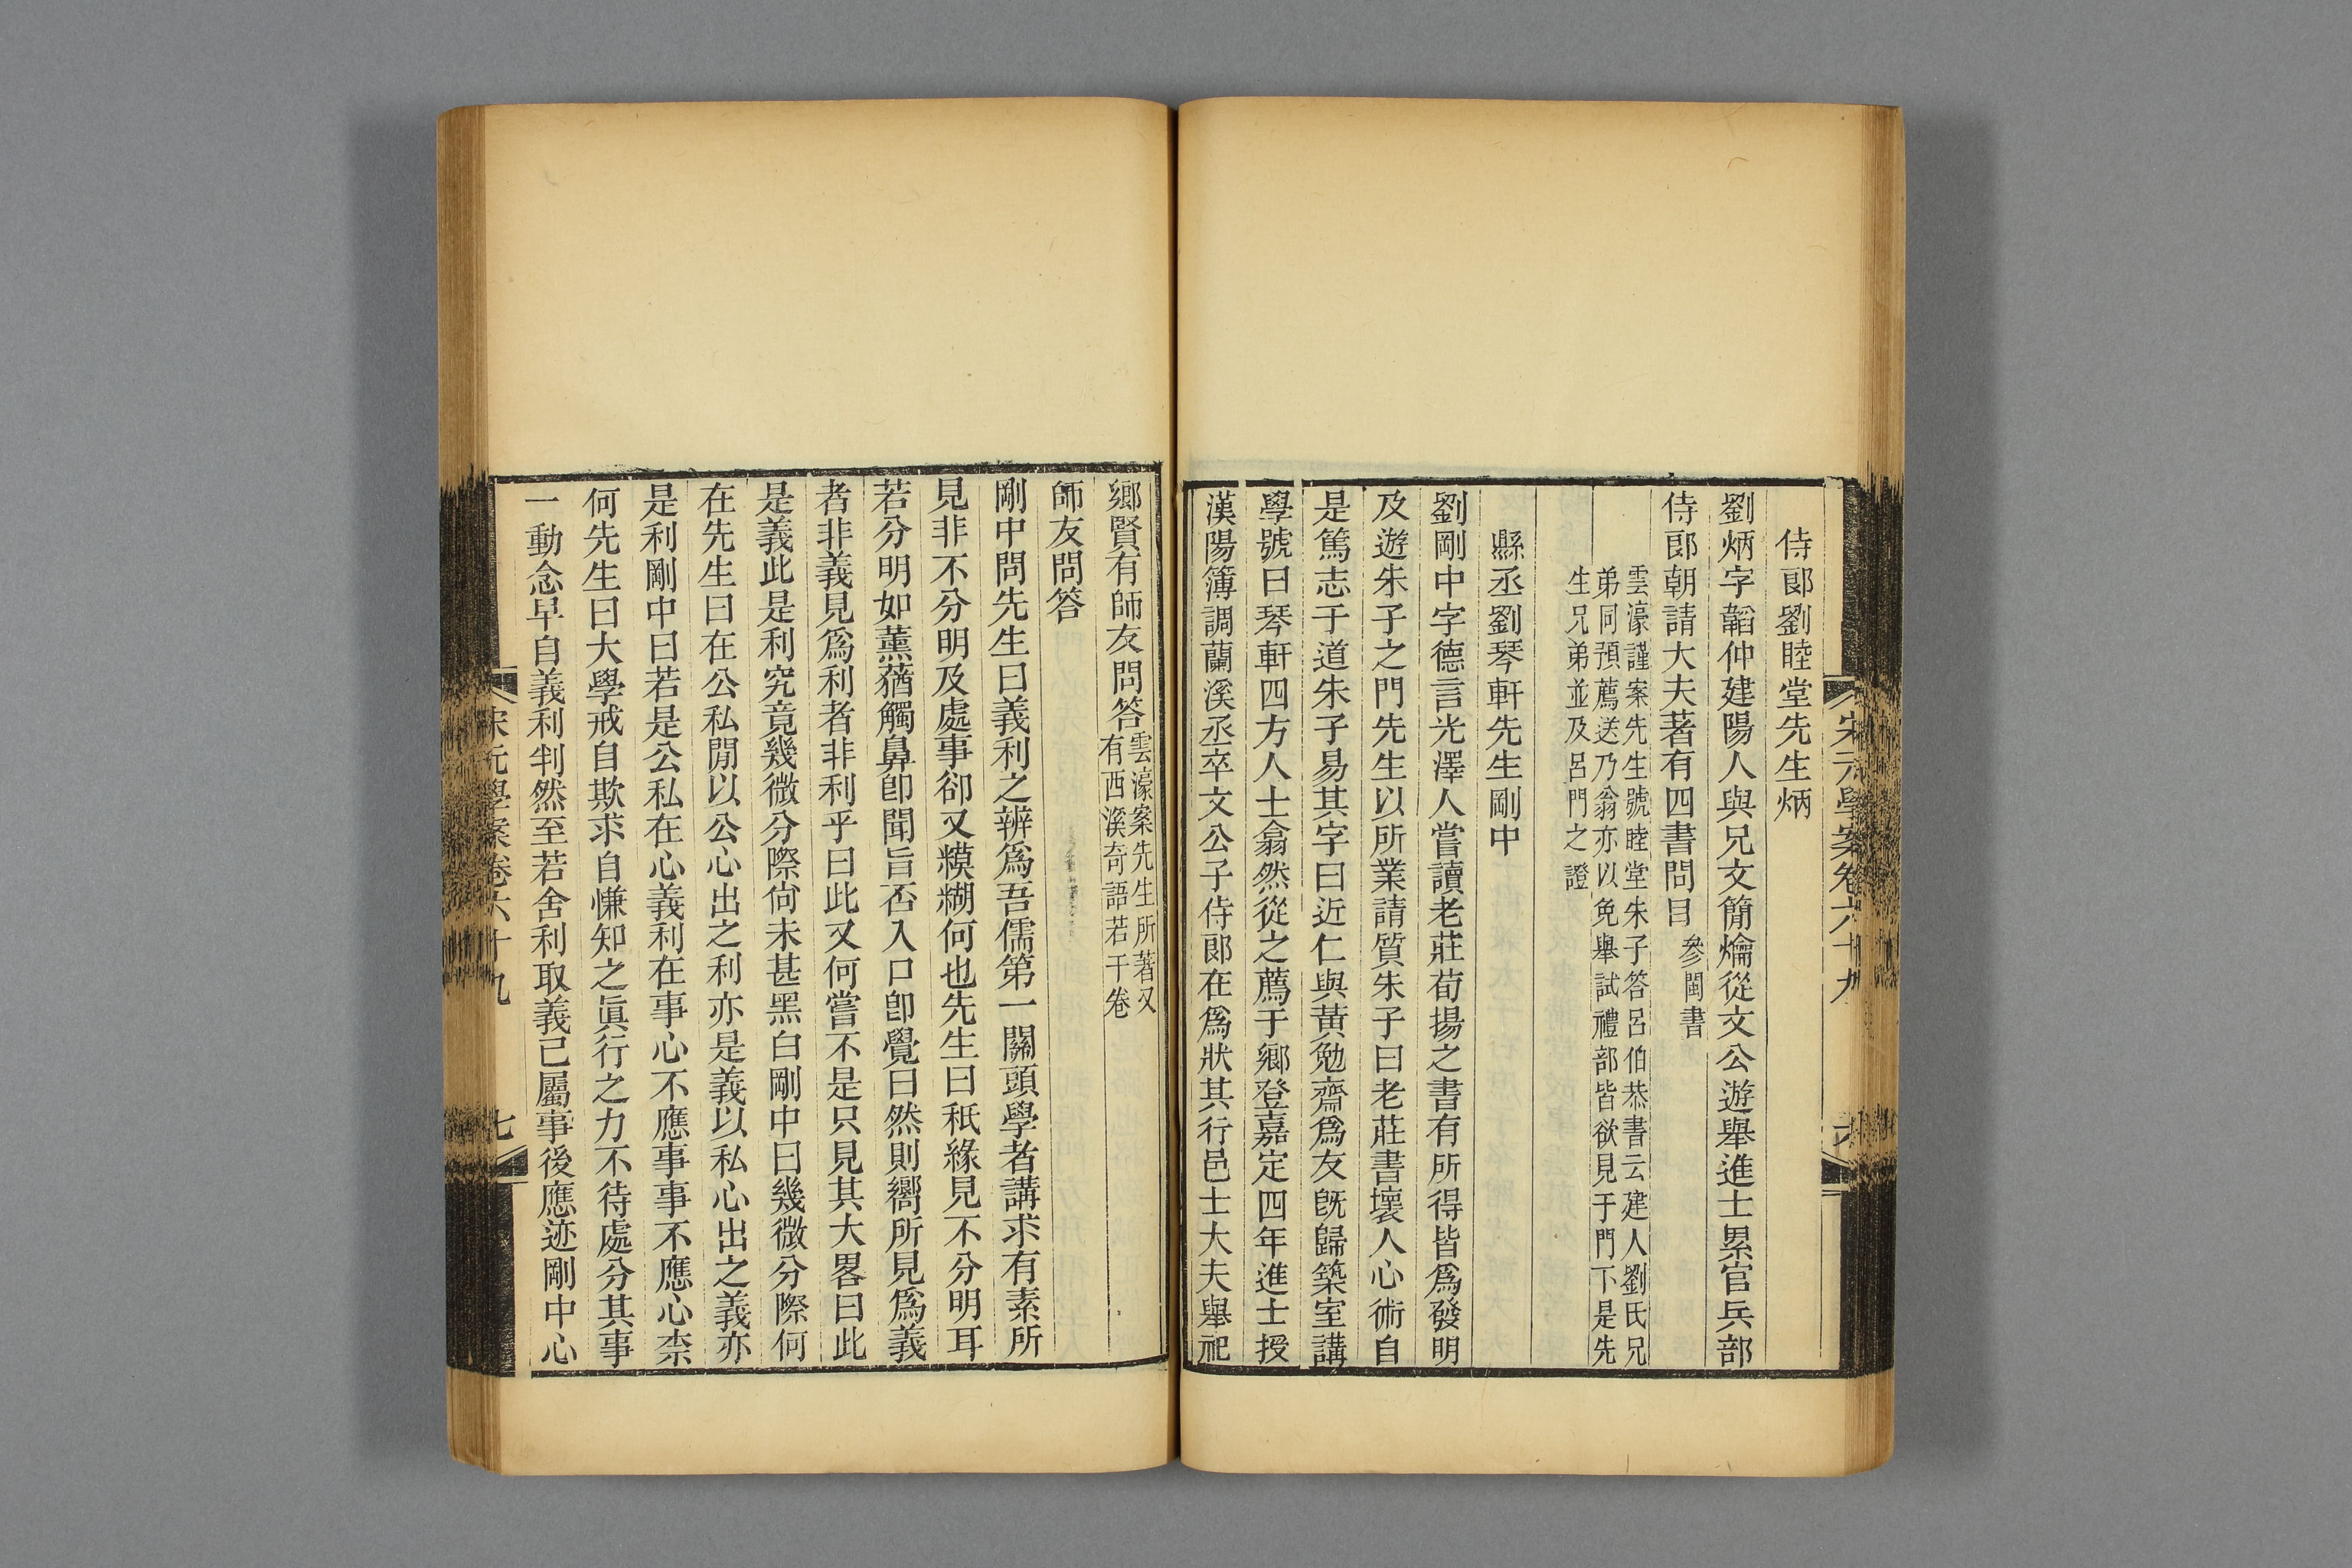 宋元學案卷六十九
六
侍郎劉睦堂先生炳
劉炳字韜仲建陽人與兄文簡爚從文公遊舉進士累官兵部
侍郎朝請大夫著有四書問目參閩書
雲濠謹案先生號睦堂朱子答呂伯恭書云建人劉氏兄
弟同預薦送乃翁亦以免舉試禮部皆欲見于門下是先
生兄弟並及呂門之證
縣丞劉琴軒先生剛中
劉剛中字德言光澤人嘗讀老莊荀揚之書有所得皆爲發明
及遊朱子之門先生以所業請質朱子曰老莊書壞人心術自
是篤志于道朱子易其字曰近仁與黃勉齋爲友旣歸築室講
學號曰琴軒四方人士翕然從之薦于鄉登嘉定四年進士授
漢陽簿調蘭溪丞卒文公子侍郎在爲狀其行邑士大夫舉祀
鄉賢有師友問答雲濠案先生所著又
有西溪奇語若干卷
師友問答
剛中問先生曰義利之辨爲吾儒第一關頭學者講求有素所
見非不分明及處事卻又糢糊何也先生曰秖緣見不分明耳
若分明如薰蕕觸鼻卽聞旨否入口卽覺曰然則嚮所見爲義
者非義見爲利者非利乎曰此又何嘗不是只見其大畧曰此
是義此是利究竟幾微分際尙未甚黑白剛中曰幾微分際何
在先生曰在公私閒以公心出之利亦是義以私心出之義亦
是利剛中曰若是公私在心義利在事心不應事事不應心柰
何先生曰大學戒自欺求自慊知之眞行之力不待處分其事
一動念早自義利判然至若舍利取義已屬事後應迹剛中心
宋元學案卷六十九
七